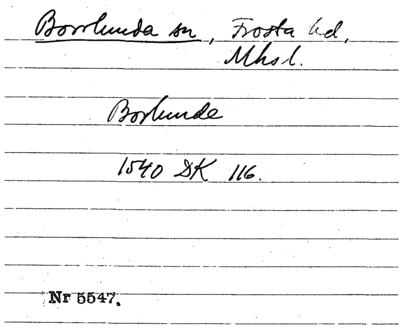 Borrlunda sn, Frosta hd,
Mhsl.
Borlunde
1540 DK 116.
Nr 5547.